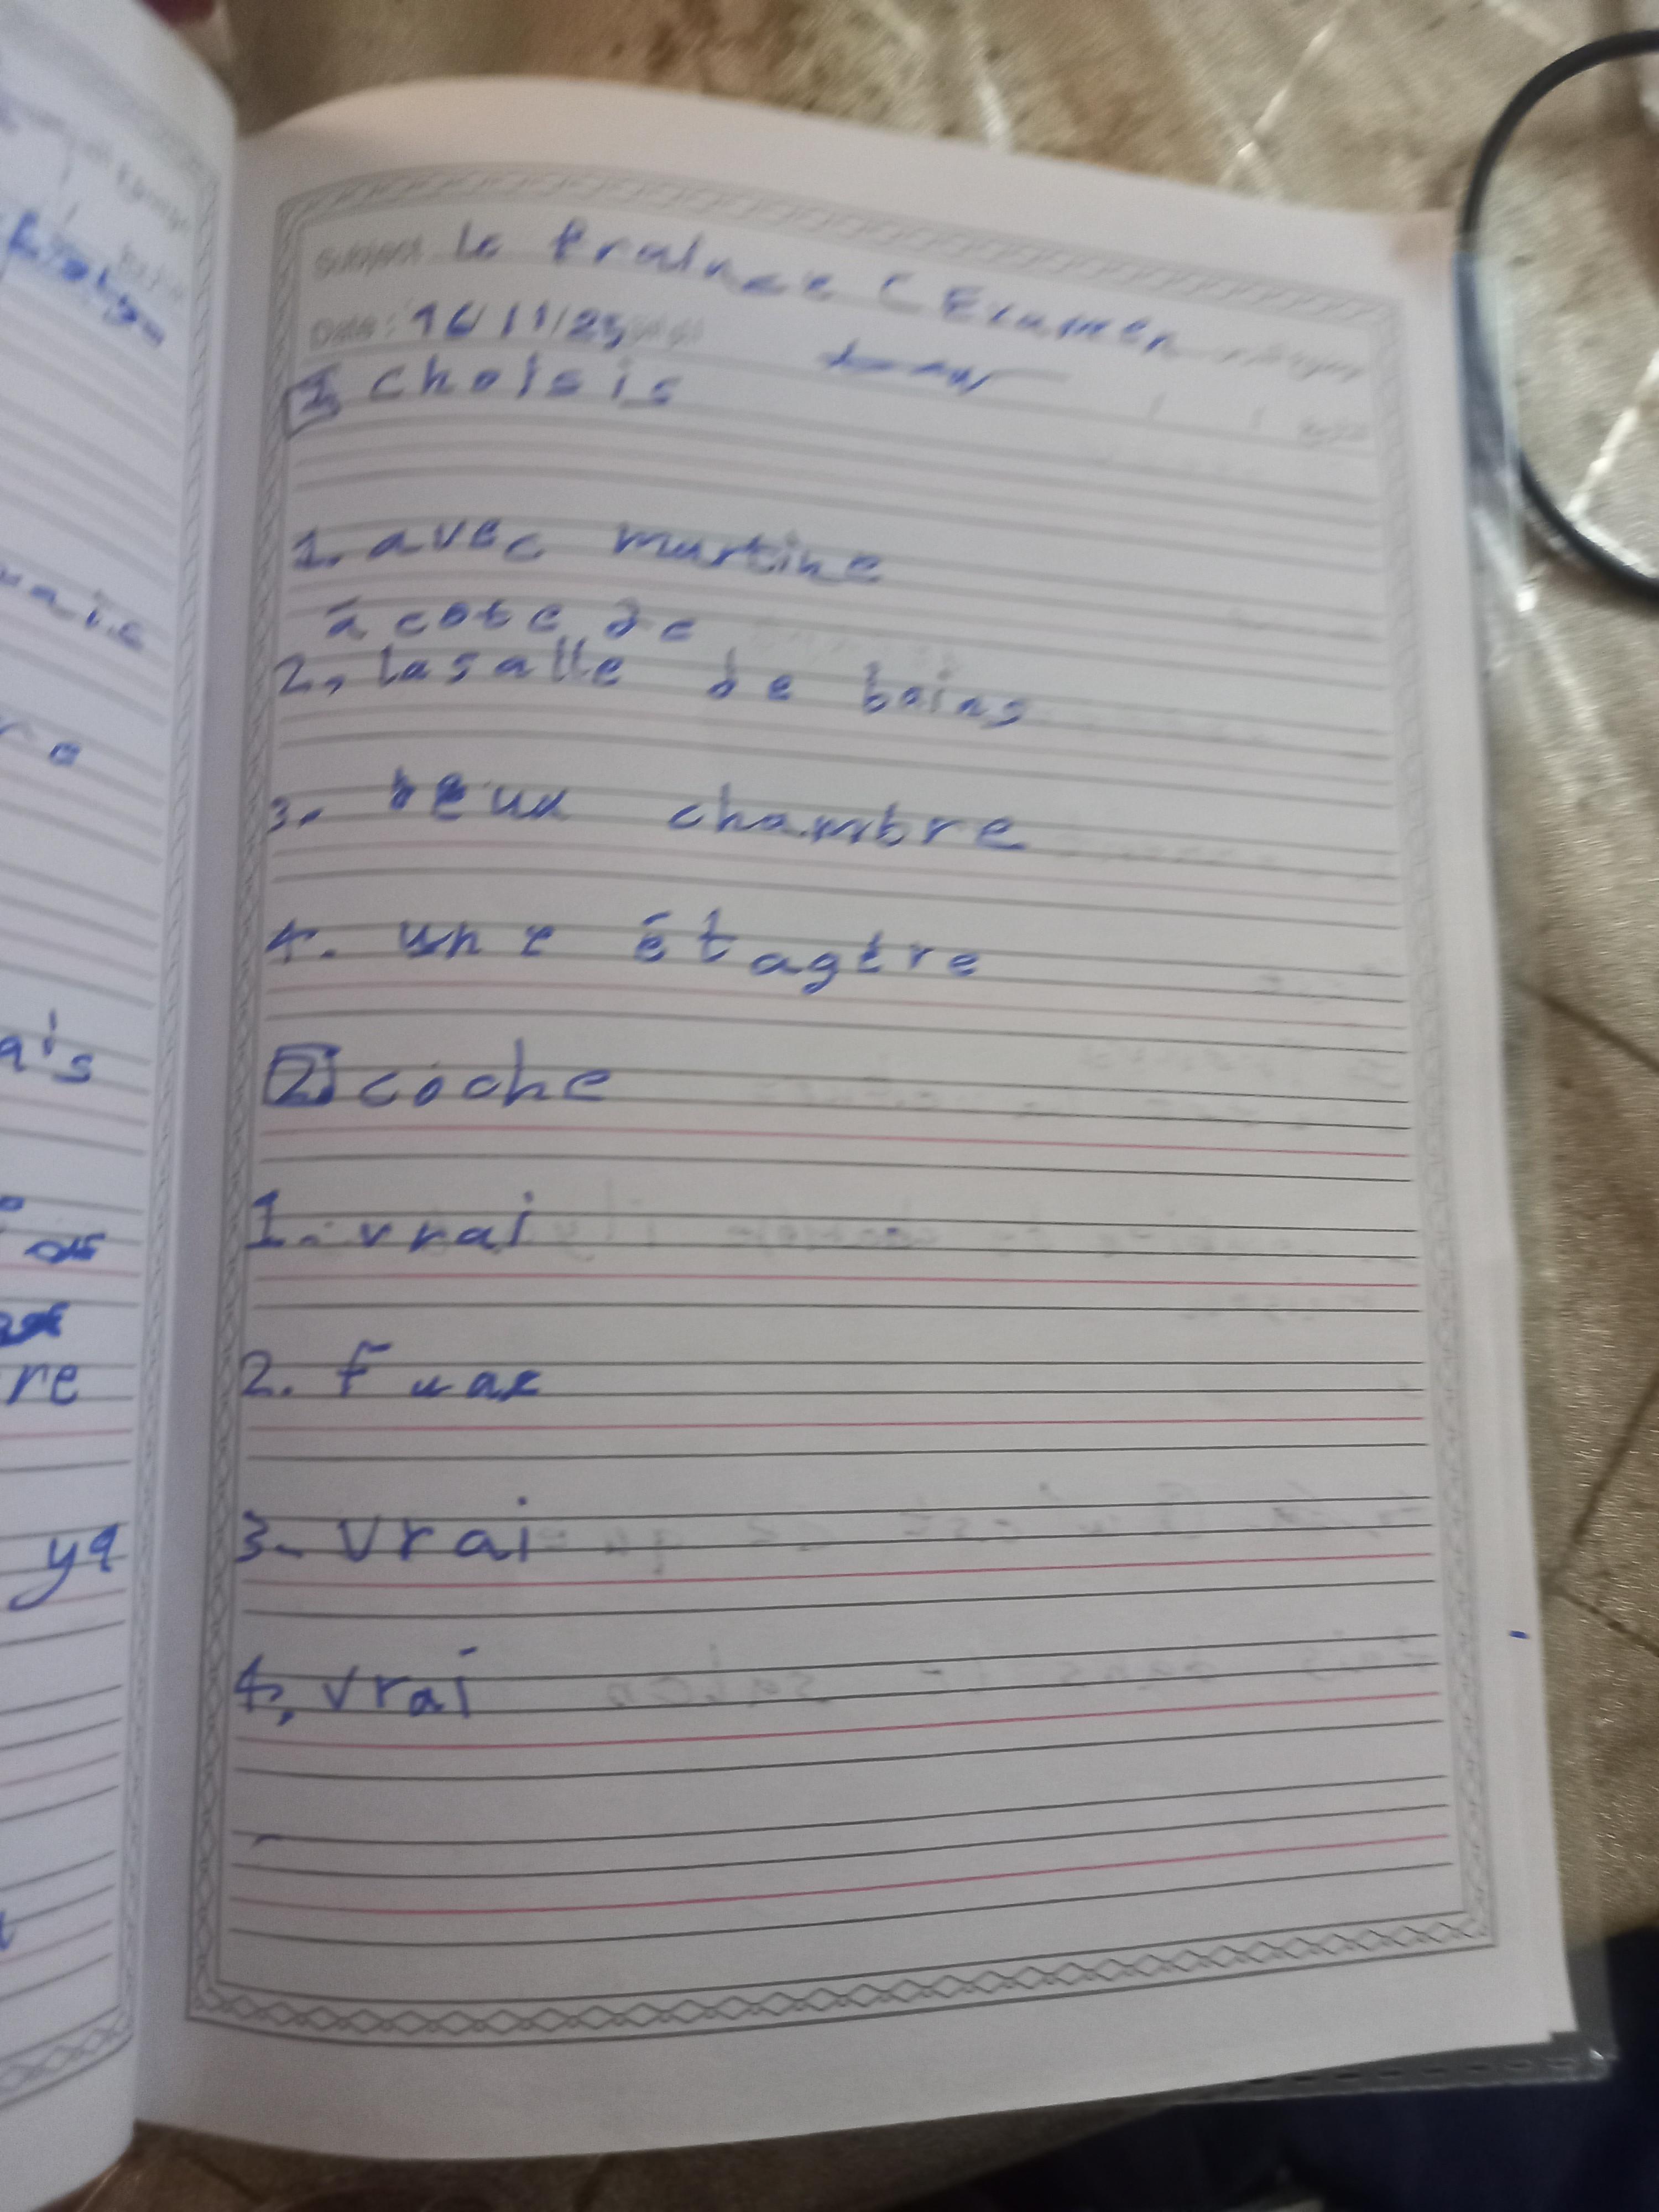 Subject: le fraincee (Examen
Date: 16/11/25
1, choisis
1. avec murtine
à cote de
2, la salle de bains
3. deux chambre
4. une étagère
2. coche
1. vrai
2. Fuax
3. vrai
4, vrai
vais
re
ais
re
ya